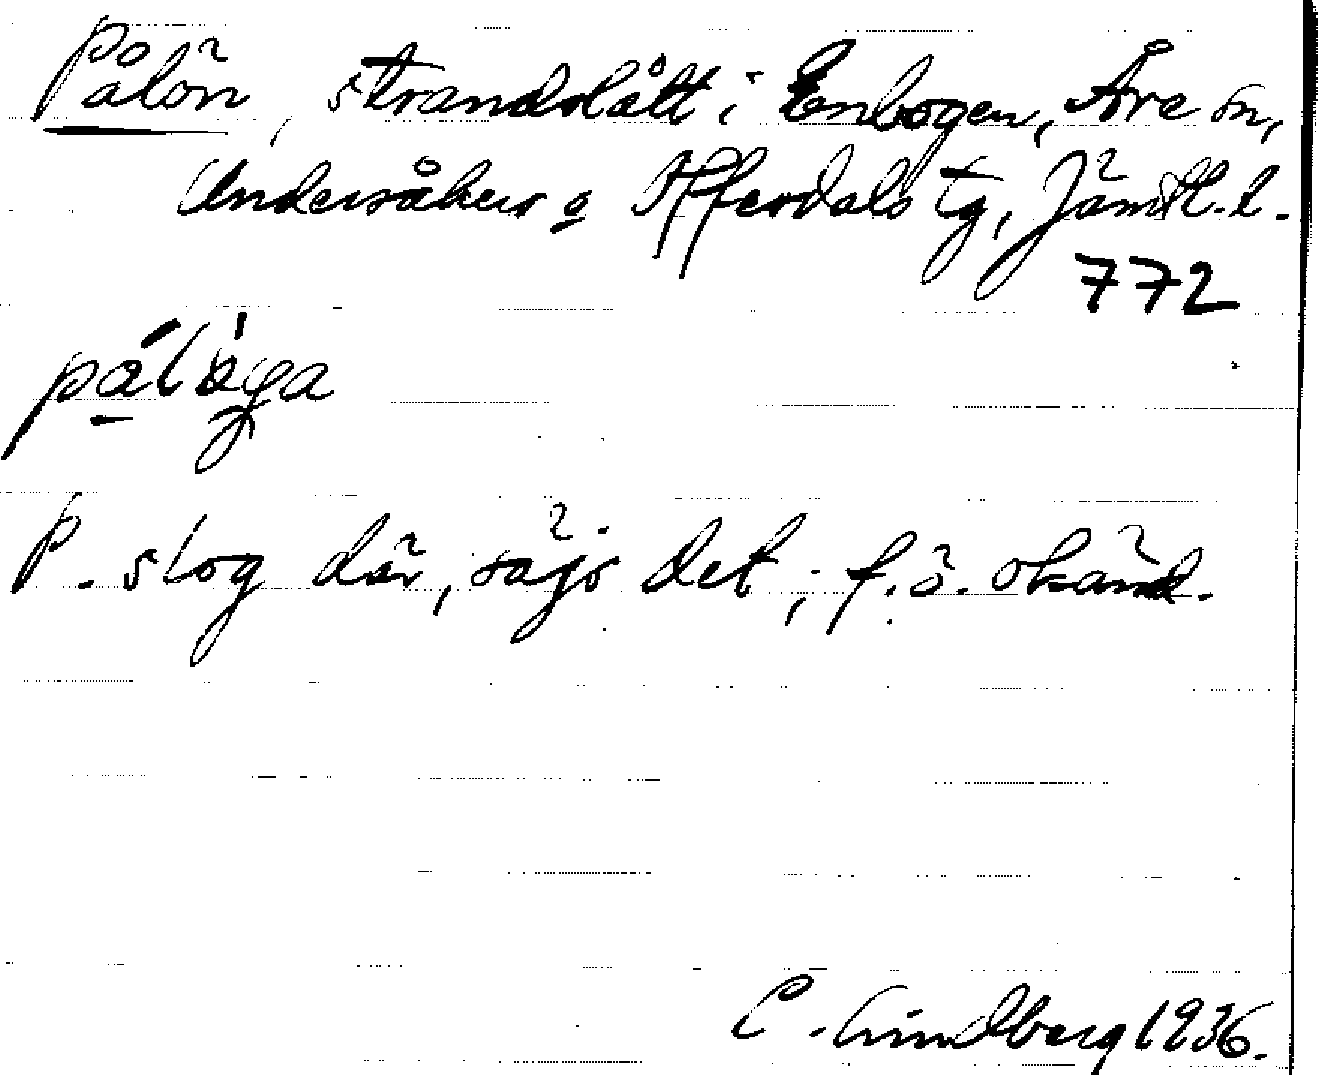 Pålön, strandslått i Enbogen, Åre sn,
Undersåkers o Offerdals tg, Jämtl. l.
772
P. slog där, säjs det; f. ö. okänd.
C. Lindberg 1936.